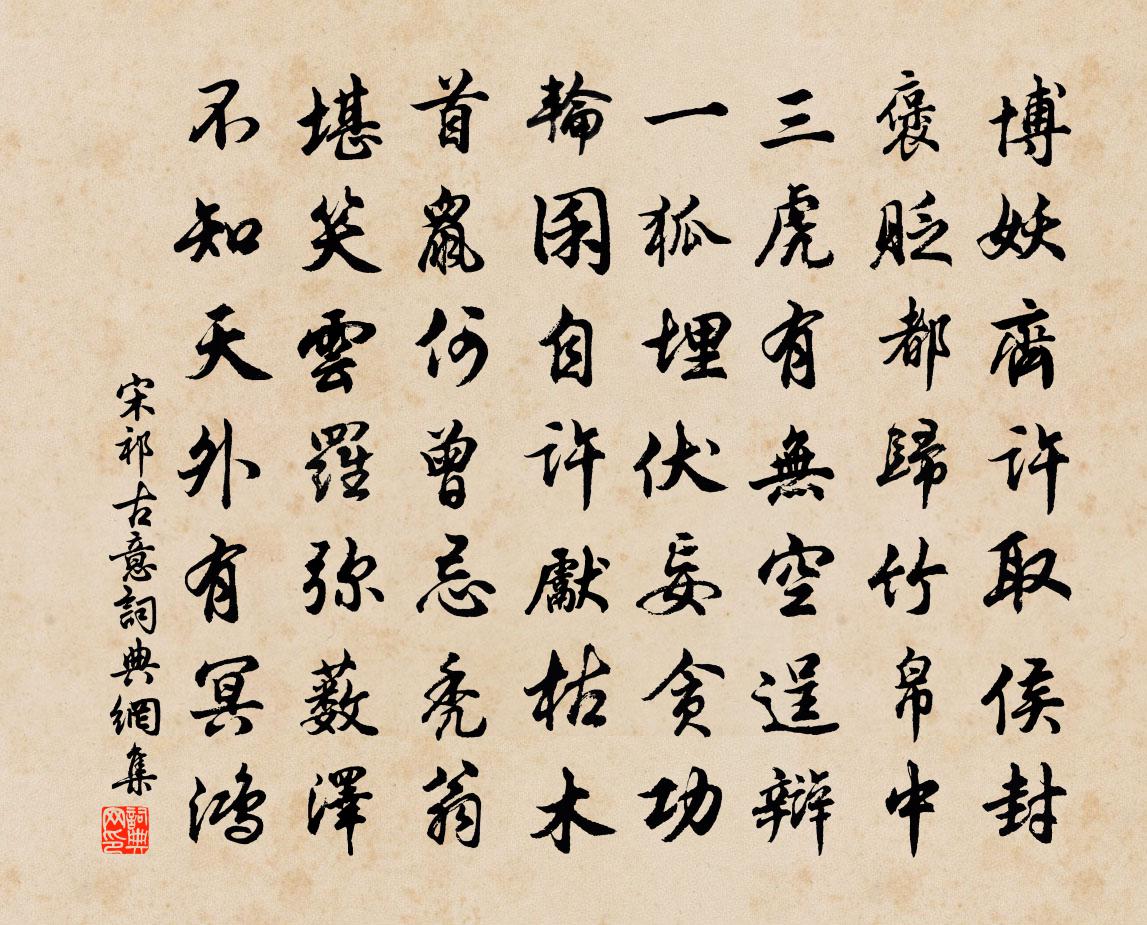 博妖齊許取侯封
褒貶都歸竹帛中
三虎有無空逞辯
一狐埋伏妄貪功
輪囷自許獻枯木
首鼠何曾忌禿翁
堪笑雲羅彌藪澤
不知天外有冥鴻
宋祁古意詞典網集
詞典网印